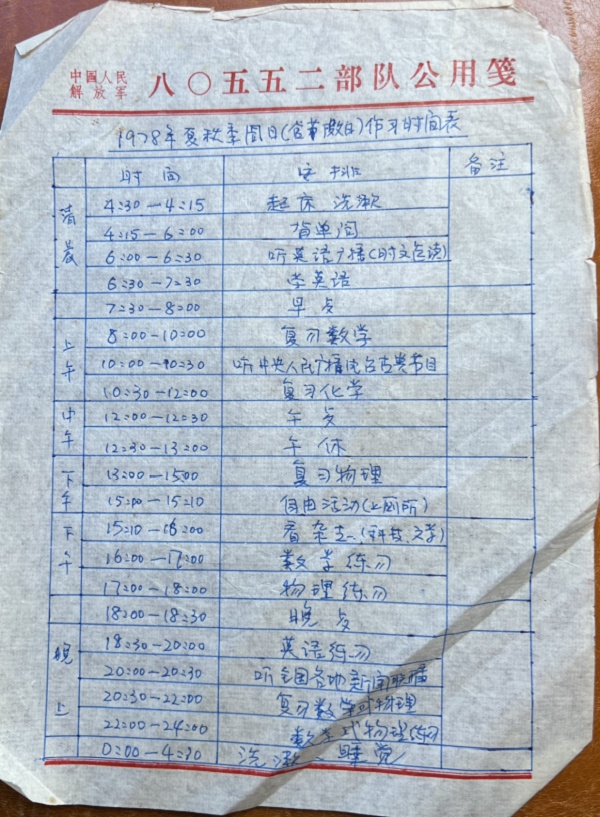 中國人民
解放军
八〇五五二部队公用笺
1978年夏秋季周日(含节假日)作习时间表
时间 安排 备注
清晨 4:30—4:15 起床 洗漱
4:15—6:00 背单词
6:00—6:30 听英语广播(时文选读)
6:30—7:30 学英语
7:30—8:00 早点
上午 8:00—10:00 复习数学
10:00—10:30 听中央人民广播电台古典节目
10:30—12:00 复习化学
中午 12:00—12:30 午点
12:30—13:00 午休
下午 13:00—15:00 复习物理
15:00—15:10 自由活动(上厕所)
下午 15:10—16:00 看杂志(科技、文学)
16:00—17:00 数学练习
17:00—18:00 物理练习
18:00—18:30 晚点
晚上 18:30—20:00 英语练习
20:00—20:30 听全国各地新闻联播
20:30—22:00 复习数学或物理
22:00—24:00 数学或物理练习
0:00—4:30 洗漱、睡觉